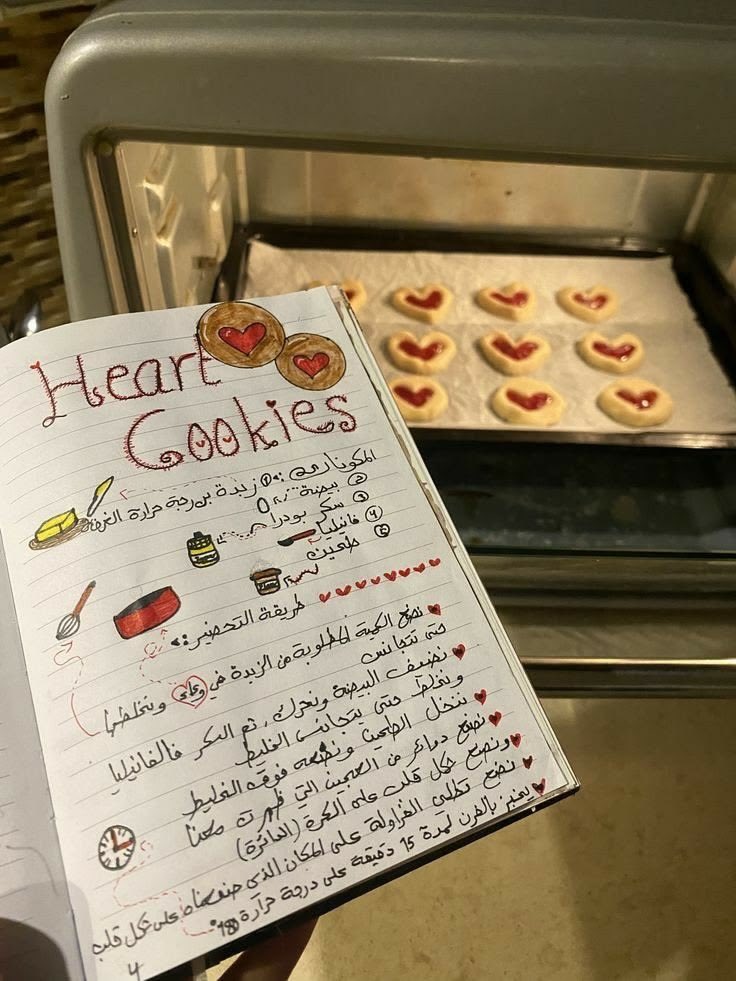 Heart
Cookies
المكونات: ① زبدة بن رجة حرارة الغرفة
② بيضة
③ سكر بودرا
④ فانيليا
⑤ طحين
طريقة التحضير:
نضع الكمية المطلوبة من الزبدة في وعاء ونخلطها
حتى تتجانس
نضيف البيضة ونحرك، ثم السكر فالفانيليا
ونخلط حتى يتجانس الخليط
ننخل الطحين ونضعه فوق الخليط
نضع دوائر من العجين التي ظهرت معنا
ونضع شكل قلب على الكرة (الدائرة)
نضع تطلي الفراولة على المكان الذي صنعناه على شكل قلب
يخبز بالفرن لمدة 15 دقيقة على درجة حرارة 180
4